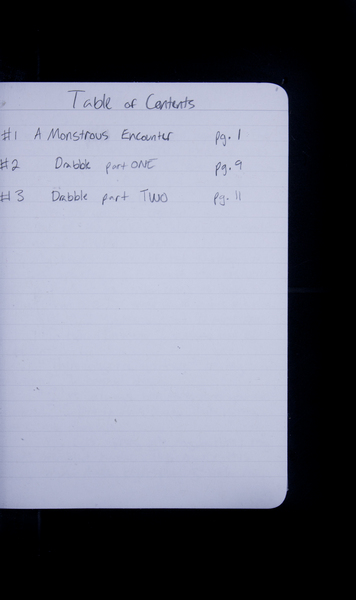 Table of Contents
#1 A Monstrous Encounter pg. 1
#2 Drabble part ONE pg. 9
#3 Drabble part TWO pg. 11